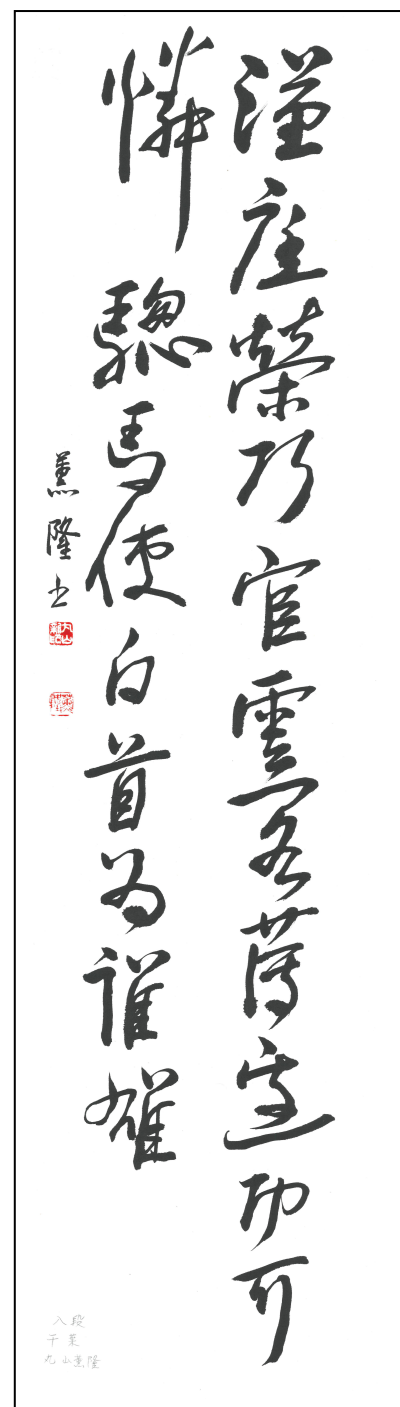 漢庭榮巧宦雲閣薄邊功可
憐驄馬使白首為誰雄
薫隆书
八段
千葉
丸山薫隆